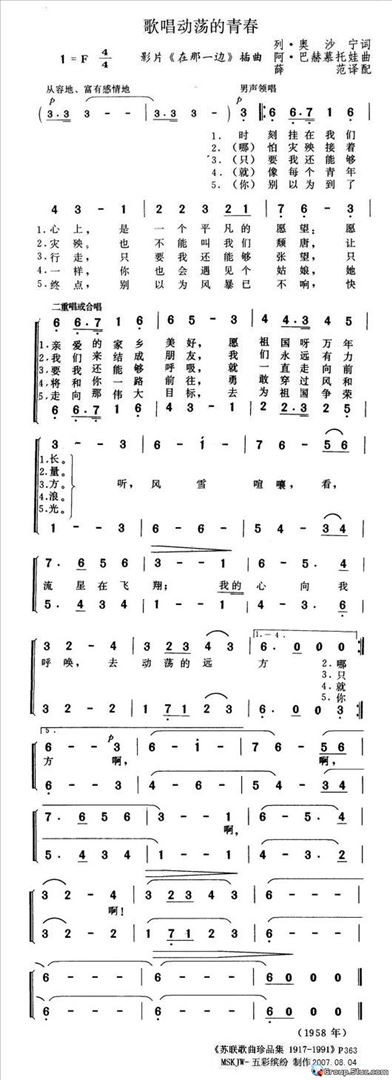 歌唱动荡的青春
列·奥沙宁词
1 = F 4/4 影片《在那一边》插曲 阿·巴赫慕托娃曲
薛范译配
从容地、富有感情地 男声领唱
( 3·3 3 - 3·3 3 - 3 ) 6 6·7 1 6
1. 时刻挂在我们
2. (哪)怕灾殃接着
3. (只)要我还能够
4. (就)像每个青年
5. (你)别以为到了
4 3 - 1 2 2 3 21 7 6 - 3
1. 心上, 是一个平凡的愿望; 愿
2. 灾殃。 也不能叫我们颓唐, 让
3. 行走, 只要我还能够张望, 只
4. 一样, 你也会遇见个姑娘, 她
5. 终点, 别以为风暴已不响, 快
二重唱或合唱
6 6·7 1 6 4 3 - 1 2 2 3 4 3 2 1 7
1. 亲爱的家乡美好, 愿祖国呀万年
2. 我们来结成朋友, 我们永远有力
3. 要我还能够呼吸, 就一直走向前
4. 将和你一路前往, 勇敢穿过风和
5. 走向那伟大目标, 去为祖国争荣
3 - - 3 6 - i - 7 6 - 56
1. 长。
2. 量。
3. 方。 听, 风雪喧嚷, 看,
4. 浪。
5. 光。
1 - - 3 6 - - 6 5 - 4 - 34
7· 6 5 6 3 - - 1 6 - 5· 4
流星在飞翔; 我的心向我
5· 4 3 4
3 2 - 4 3 23 4 3 6 0 0 0
1.-4.
呼唤, 去动荡的远方 2. 哪
3. 只
4. 就
5. 你
3 2 - 2 1 71 2 3 6 0 0 0
5.
6 - - 3 6 - i - 7 6 - 56
方 啊, 啊,
7· 6 5 6 3 - - 1 6 - 5 4
啊,
5· 4 3 4
3 2 - 4 3 23 4 3 6 - - -
啊!
3 2 - 2 1 71 2 3 6 - - -
6 - - - 6 - - - 6 0 0 0
6 - - - 6 - - - 6 0 0 0
(1958 年)
《苏联歌曲珍品集 1917-1991》P363
MSKJW- 五彩缤纷 制作2007.08.04
Group.Stuz.com